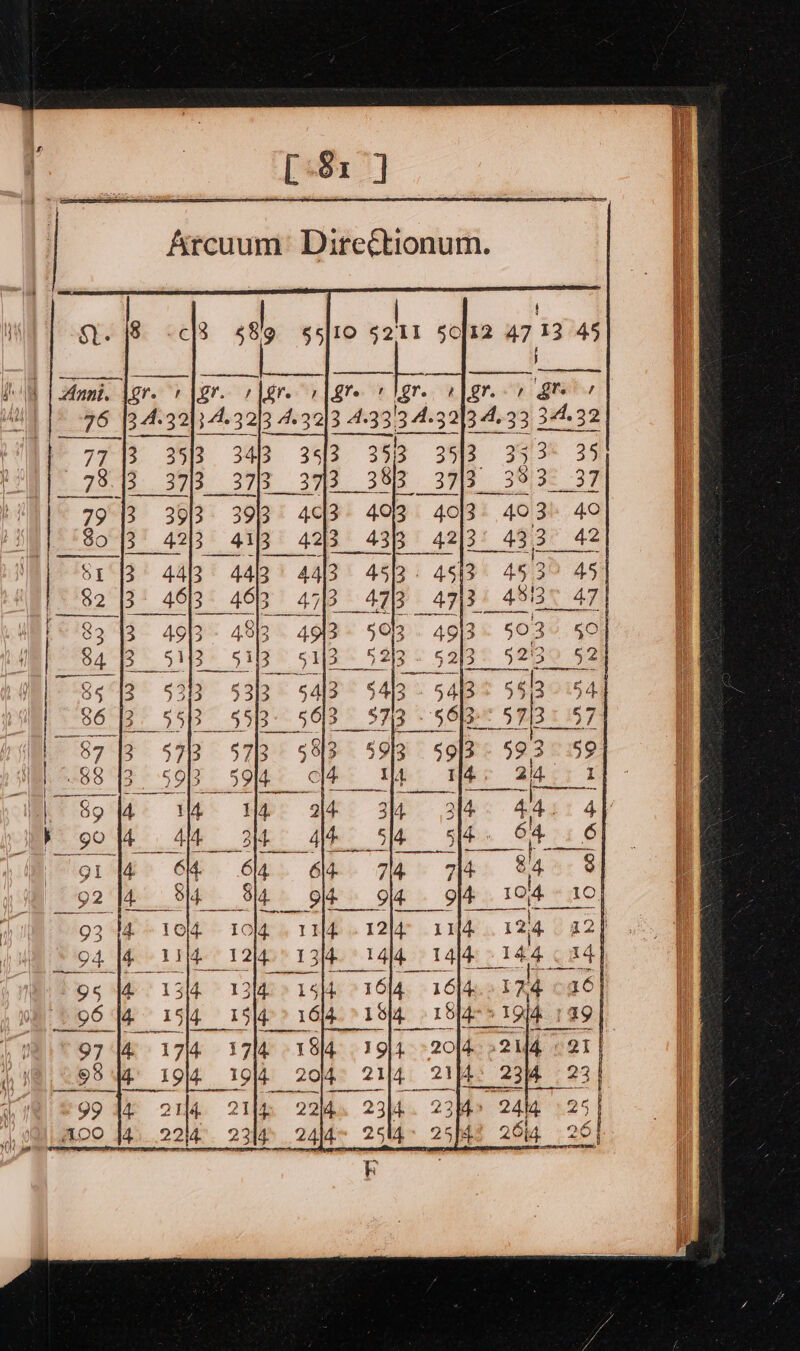 [ 81 ]
Arcuum Directionum.
♌. 8 c 8 58 9 55 10 52 11 50 12 47 13 45
Anni. gr. ′ gr. ′ gr. ′ gr. ′ gr. ′ gr. ′ gr. ′
76 3 A.32 3 A.32 3 A.32 3 A.33 3 A.32 3 A.33 3 A.32
77 3 35 3 34 3 35 3 35 3 35 3 35 3 35
78 3 37 3 37 3 37 3 38 3 37 3 38 3 37
79 3 39 3 39 3 40 3 40 3 40 3 40 3 40
80 3 42 3 41 3 42 3 43 3 42 3 43 3 42
81 3 44 3 44 3 44 3 45 3 45 3 45 3 45
82 3 46 3 46 3 47 3 47 3 47 3 48 3 47
83 3 49 3 48 3 49 3 50 3 49 3 50 3 50
84 3 51 3 51 3 51 3 52 3 52 3 52 3 52
85 3 53 3 53 3 54 3 54 3 54 3 55 3 54
86 3 55 3 55 3 56 3 57 3 56 3 57 3 57
87 3 57 3 57 3 58 3 59 3 59 3 59 3 59
88 3 59 3 59 4 0 4 1 4 1 4 2 4 1
89 4 1 4 1 4 2 4 3 4 3 4 4 4 4
90 4 4 4 3 4 4 4 5 4 5 4 6 4 6
91 4 6 4 6 4 6 4 7 4 7 4 8 4 8
92 4 8 4 8 4 9 4 9 4 9 4 10 4 10
93 4 10 4 10 4 11 4 12 4 11 4 12 4 12
94 4 11 4 12 4 13 4 14 4 14 4 14 4 14
95 4 13 4 13 4 15 4 16 4 16 4 17 4 16
96 4 15 4 15 4 16 4 18 4 18 4 19 4 19
97 4 17 4 17 4 18 4 19 4 20 4 21 4 21
98 4 19 4 19 4 20 4 21 4 21 4 23 4 23
99 4 21 4 21 4 22 4 23 4 23 4 24 4 25
100 4 22 4 23 4 24 4 25 4 25 4 26 4 26
F